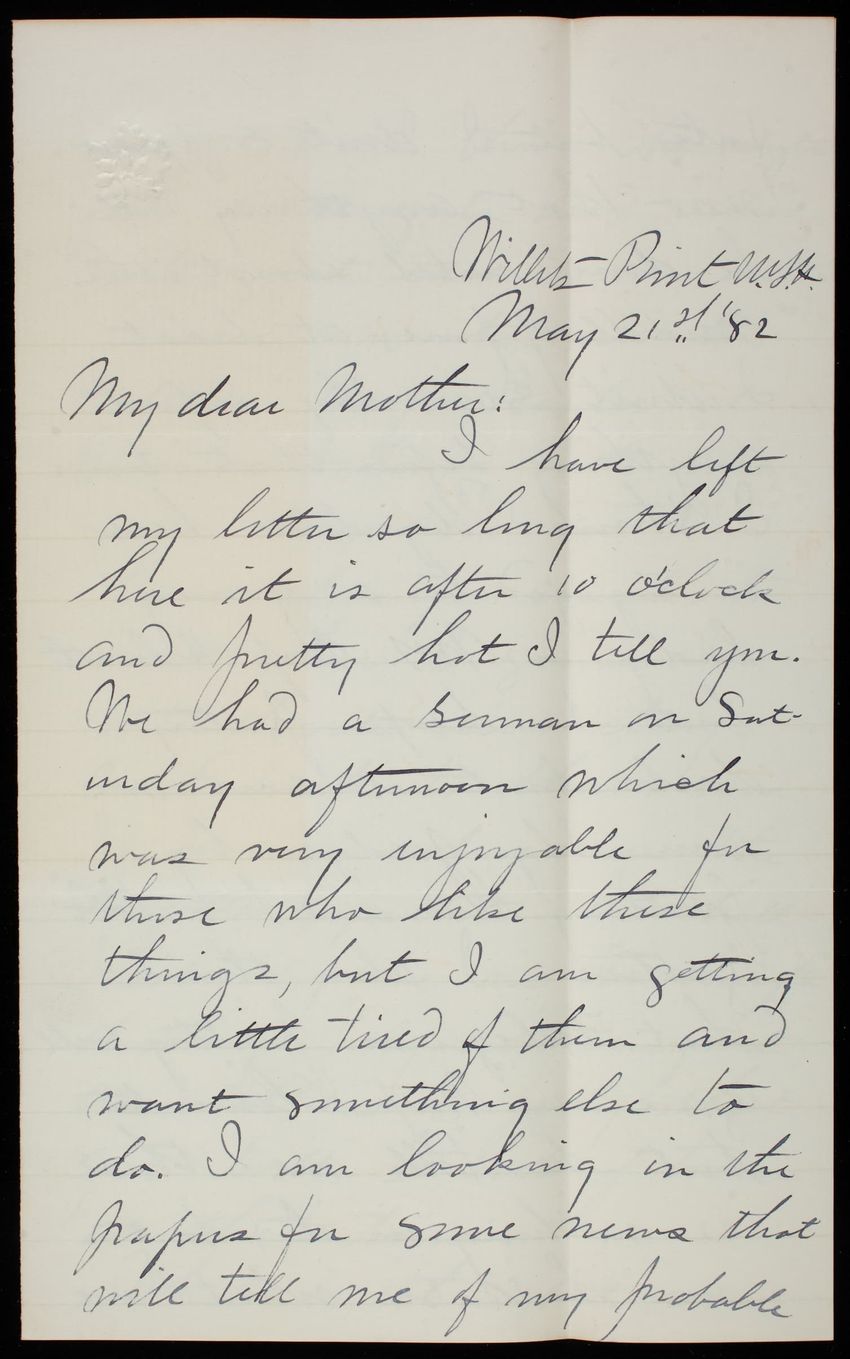 Willets Point N.Y.H.
May 21st '82
My dear Mother:
I have left
my letter so long that
here it is after 10 o'clock
and pretty hot I tell you.
We had a German on Sat-
urday afternoon which
was very enjoyable for
those who like these
things, but I am getting
a little tired of them and
want something else to
do. I am looking in the
papers for some news that
will tell me of my probable